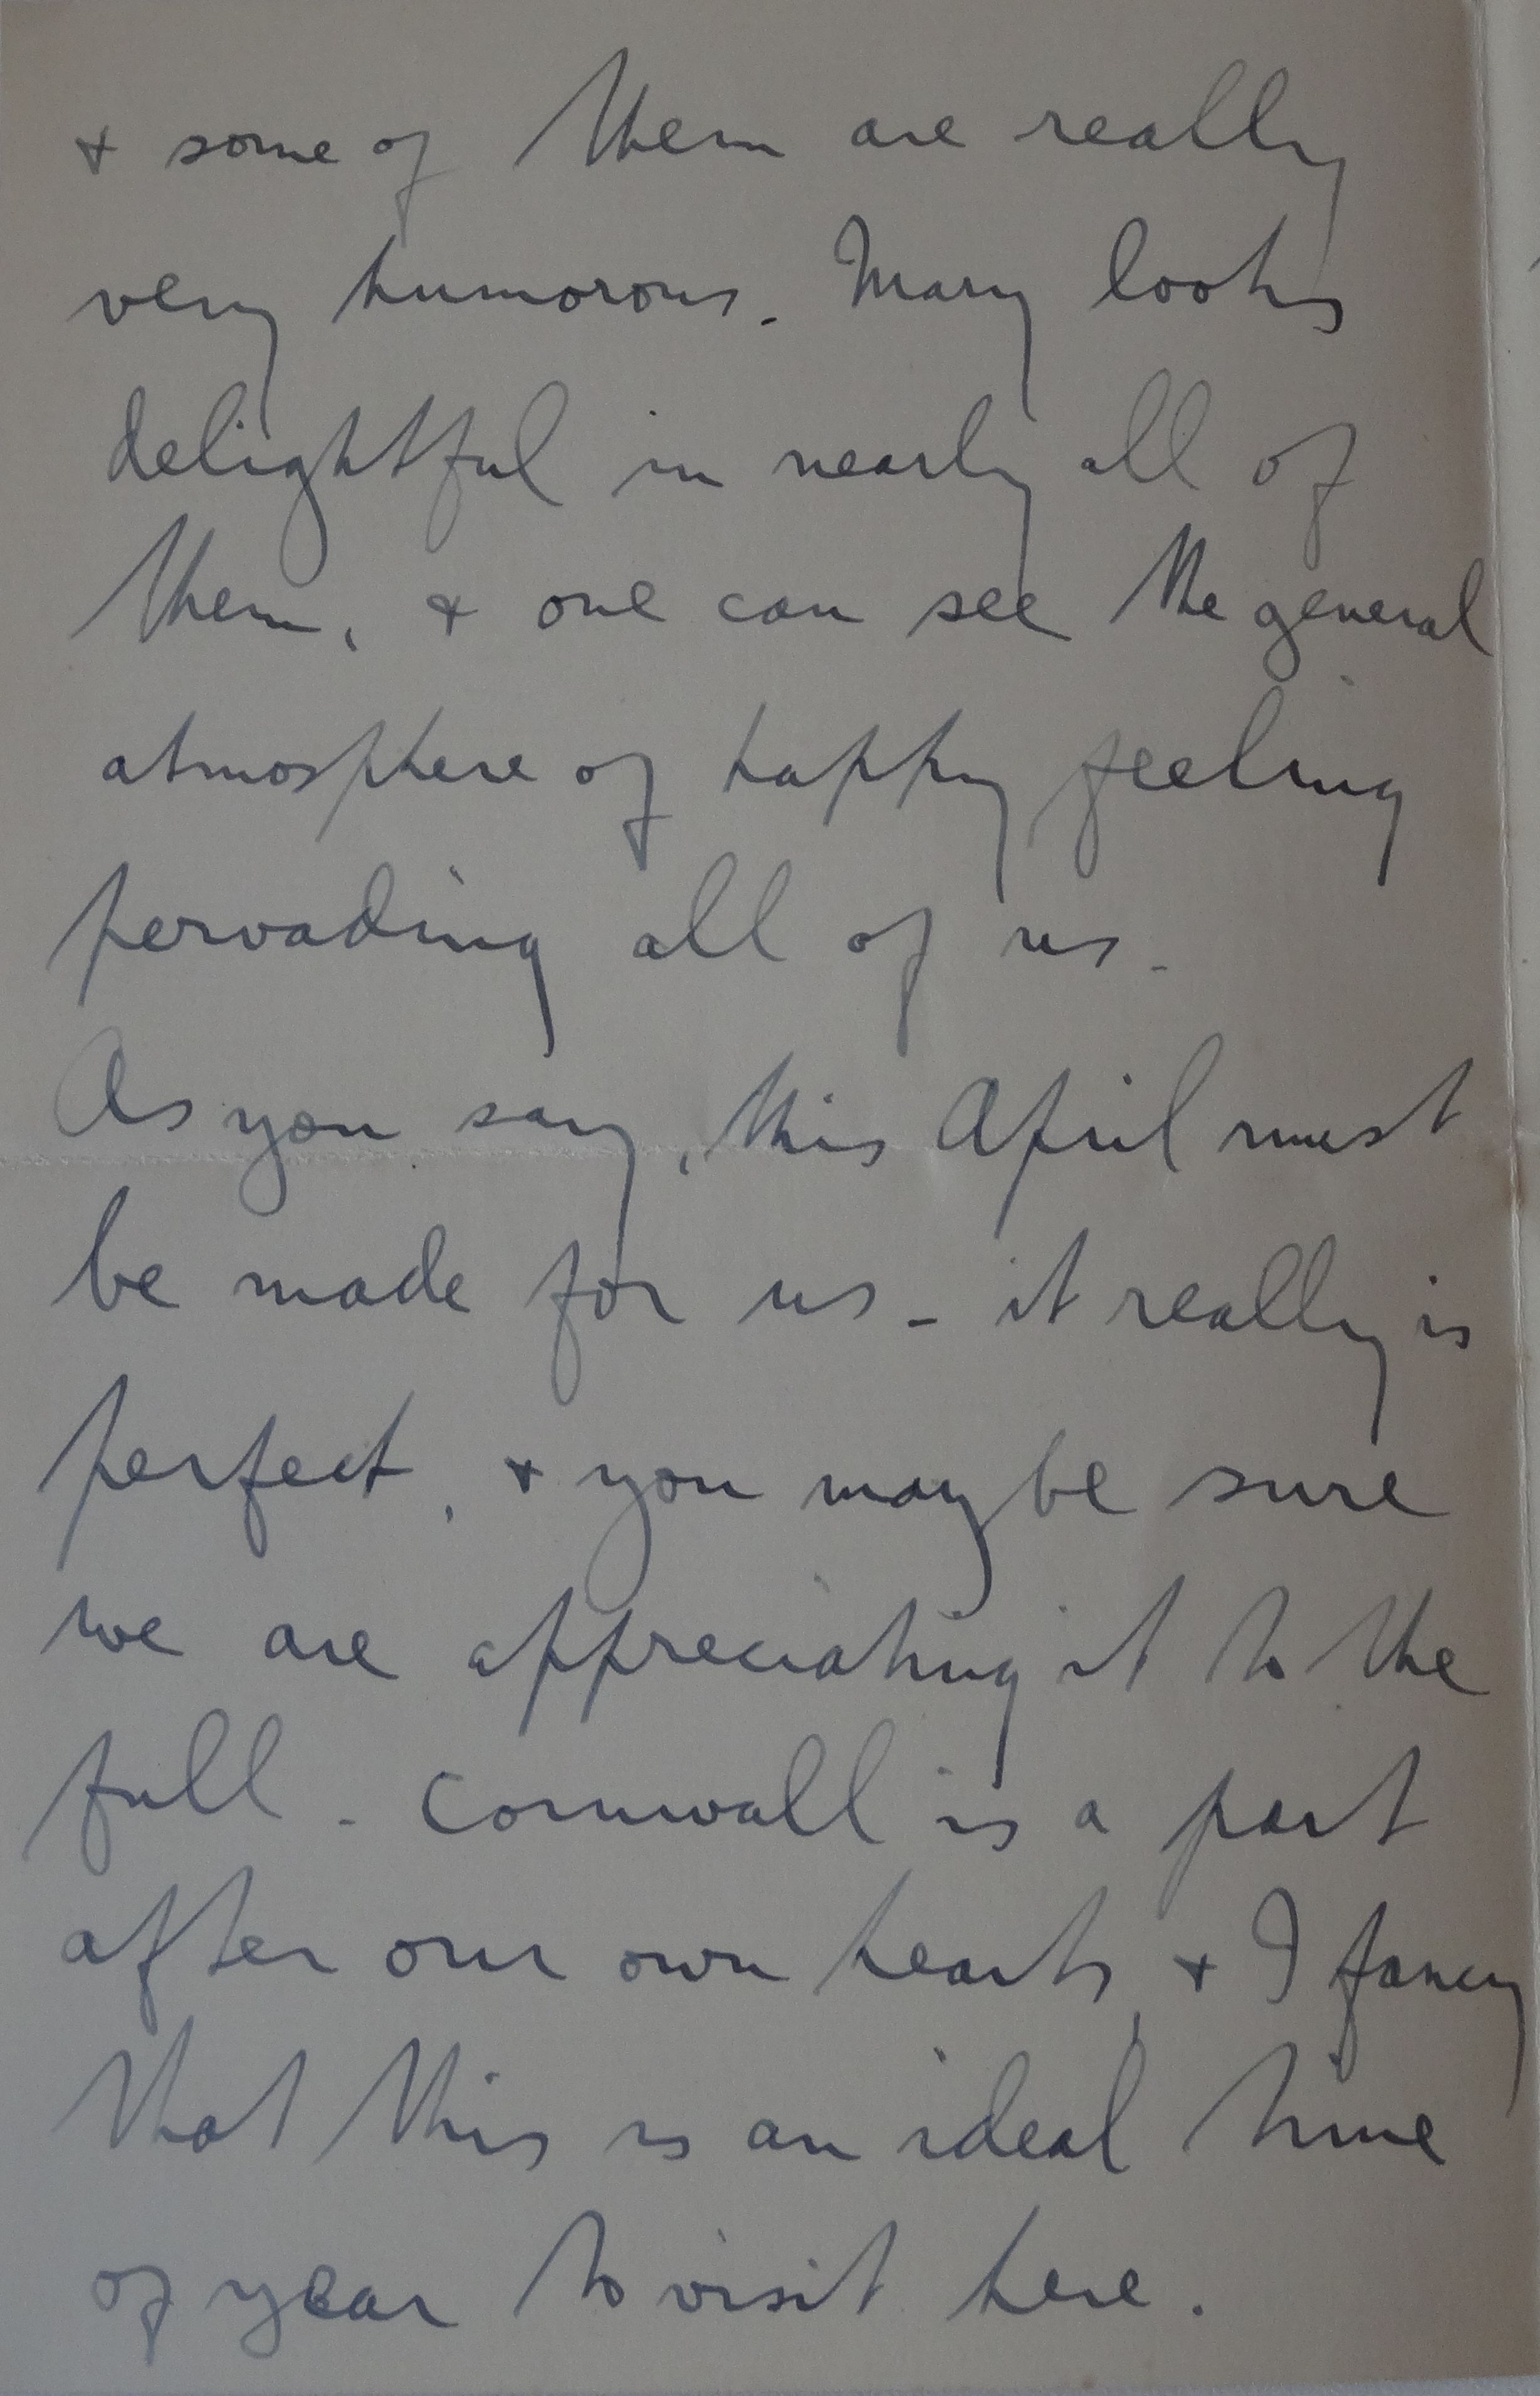 & some of them are really
very humorous. Mary looks
delightful in nearly all of
them, & one can see the general
atmosphere of happy feeling
pervading all of us.
As you say, this April must
be made for us - it really is
perfect, & you may be sure
we are appreciating it to the
full. Cornwall is a part
after our own hearts, & I fancy
that this is an ideal time
of year to visit here.